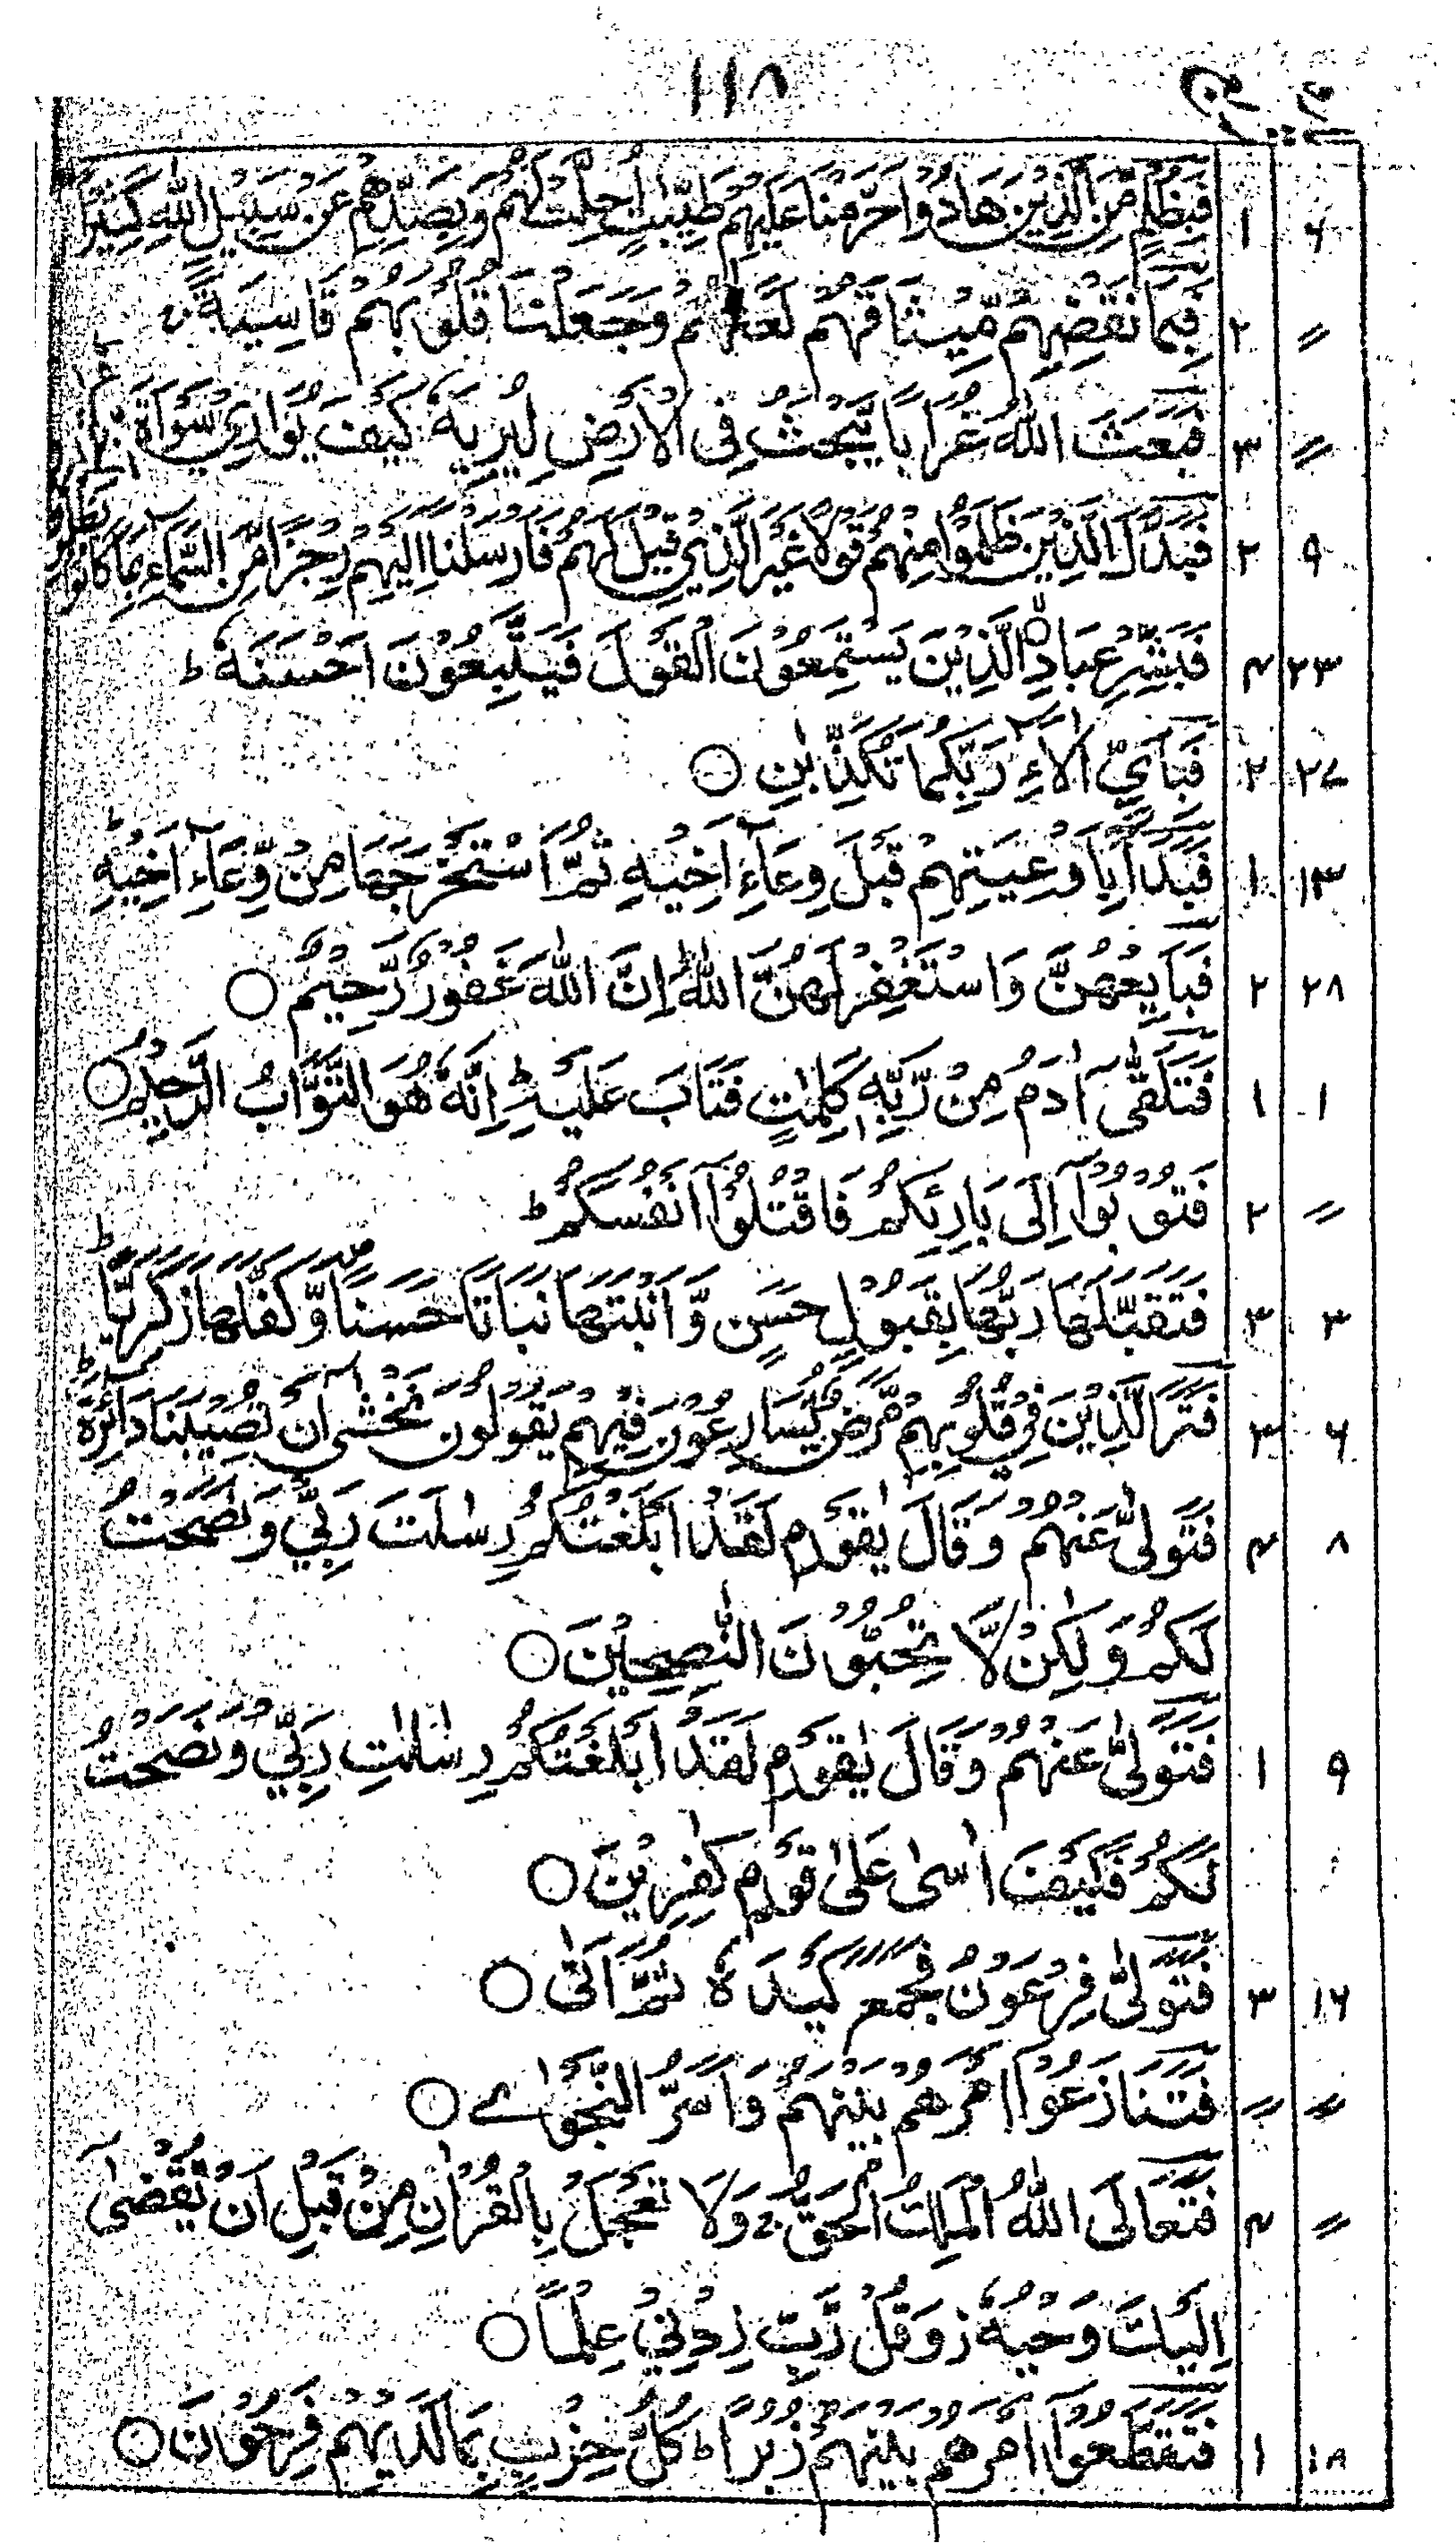 ۱۱۸
۶ ۱ فَبِظُلْمٍ مِّنَ الَّذِيْنَ هَادُوْا حَرَّمْنَا عَلَيْهِمْ طَيِّبٰتٍ اُحِلَّتْ لَهُمْ وَبِصَدِّهِمْ عَنْ سَبِيْلِ اللّٰهِ كَثِيْرًا
〃 ۲ فَبِمَا نَقْضِهِمْ مِّيْثَاقَهُمْ لَعَنّٰهُمْ وَجَعَلْنَا قُلُوْبَهُمْ قَاسِيَةً ج
〃 ۳ فَبَعَثَ اللّٰهُ غُرَابًا يَّبْحَثُ فِى الْاَرْضِ لِيُرِيَهٗ كَيْفَ يُوَارِيْ سَوْاَةَ
۹ ۲ فَبَدَّلَ الَّذِيْنَ ظَلَمُوْا مِنْهُمْ قَوْلًا غَيْرَ الَّذِيْ قِيْلَ لَهُمْ فَاَرْسَلْنَا اِلَيْهِمْ رِجْزًا مِّنَ السَّمَآءِ بِمَا كَانُوْا
۲۳ ۴ فَبَشِّرْ عِبَادِ الَّذِيْنَ يَسْتَمِعُوْنَ الْقَوْلَ فَيَتَّبِعُوْنَ اَحْسَنَهٗ ط
۲۷ ۲ فَبِاَيِّ اٰلَآءِ رَبِّكُمَا تُكَذِّبٰنِ ○
۱۳ ۱ فَبَدَاَ بِاَوْعِيَتِهِمْ قَبْلَ وِعَآءِ اَخِيْهِ ثُمَّ اسْتَخْرَجَهَا مِنْ وِّعَآءِ اَخِيْهِ ط
۲۸ ۲ فَبَايِعْهُنَّ وَاسْتَغْفِرْ لَهُنَّ اللّٰهَ ط اِنَّ اللّٰهَ غَفُوْرٌ رَّحِيْمٌ ○
۱ ۱ فَتَلَقّٰٓى اٰدَمُ مِنْ رَّبِّهٖ كَلِمٰتٍ فَتَابَ عَلَيْهِ ط اِنَّهٗ هُوَ التَّوَّابُ الرَّحِيْمُ ○
〃 ۲ فَتُوْبُوْٓا اِلٰى بَارِئِكُمْ فَاقْتُلُوْٓا اَنْفُسَكُمْ ط
۳ ۳ فَتَقَبَّلَهَا رَبُّهَا بِقَبُوْلٍ حَسَنٍ وَّاَنْۢبَتَهَا نَبَاتًا حَسَنًا وَّكَفَّلَهَا زَكَرِيَّا ط
۶ ۳ فَتَرَى الَّذِيْنَ فِيْ قُلُوْبِهِمْ مَّرَضٌ يُّسَارِعُوْنَ فِيْهِمْ يَقُوْلُوْنَ نَخْشٰٓى اَنْ تُصِيْبَنَا دَآئِرَةٌ ط
۸ ۴ فَتَوَلّٰى عَنْهُمْ وَقَالَ يٰقَوْمِ لَقَدْ اَبْلَغْتُكُمْ رِسٰلَةَ رَبِّيْ وَنَصَحْتُ
لَكُمْ وَلٰكِنْ لَّا تُحِبُّوْنَ النّٰصِحِيْنَ ○
۹ ۱ فَتَوَلّٰى عَنْهُمْ وَقَالَ يٰقَوْمِ لَقَدْ اَبْلَغْتُكُمْ رِسٰلٰتِ رَبِّيْ وَنَصَحْتُ
لَكُمْ فَكَيْفَ اٰسٰى عَلٰى قَوْمٍ كٰفِرِيْنَ ○
۱۶ ۳ فَتَوَلّٰى فِرْعَوْنُ فَجَمَعَ كَيْدَهٗ ثُمَّ اَتٰى ○
〃 〃 فَتَنَازَعُوْٓا اَمْرَهُمْ بَيْنَهُمْ وَاَسَرُّوا النَّجْوٰے ○
〃 ۴ فَتَعٰلَى اللّٰهُ الْمَلِكُ الْحَقُّ ج وَلَا تَعْجَلْ بِالْقُرْاٰنِ مِنْ قَبْلِ اَنْ يُّقْضٰٓى
اِلَيْكَ وَحْيُهٗ ز وَقُلْ رَّبِّ زِدْنِيْ عِلْمًا ○
۱۸ ۱ فَتَقَطَّعُوْٓا اَمْرَهُمْ بَيْنَهُمْ زُبُرًا ط كُلُّ حِزْبٍۭ بِمَا لَدَيْهِمْ فَرِحُوْنَ ○